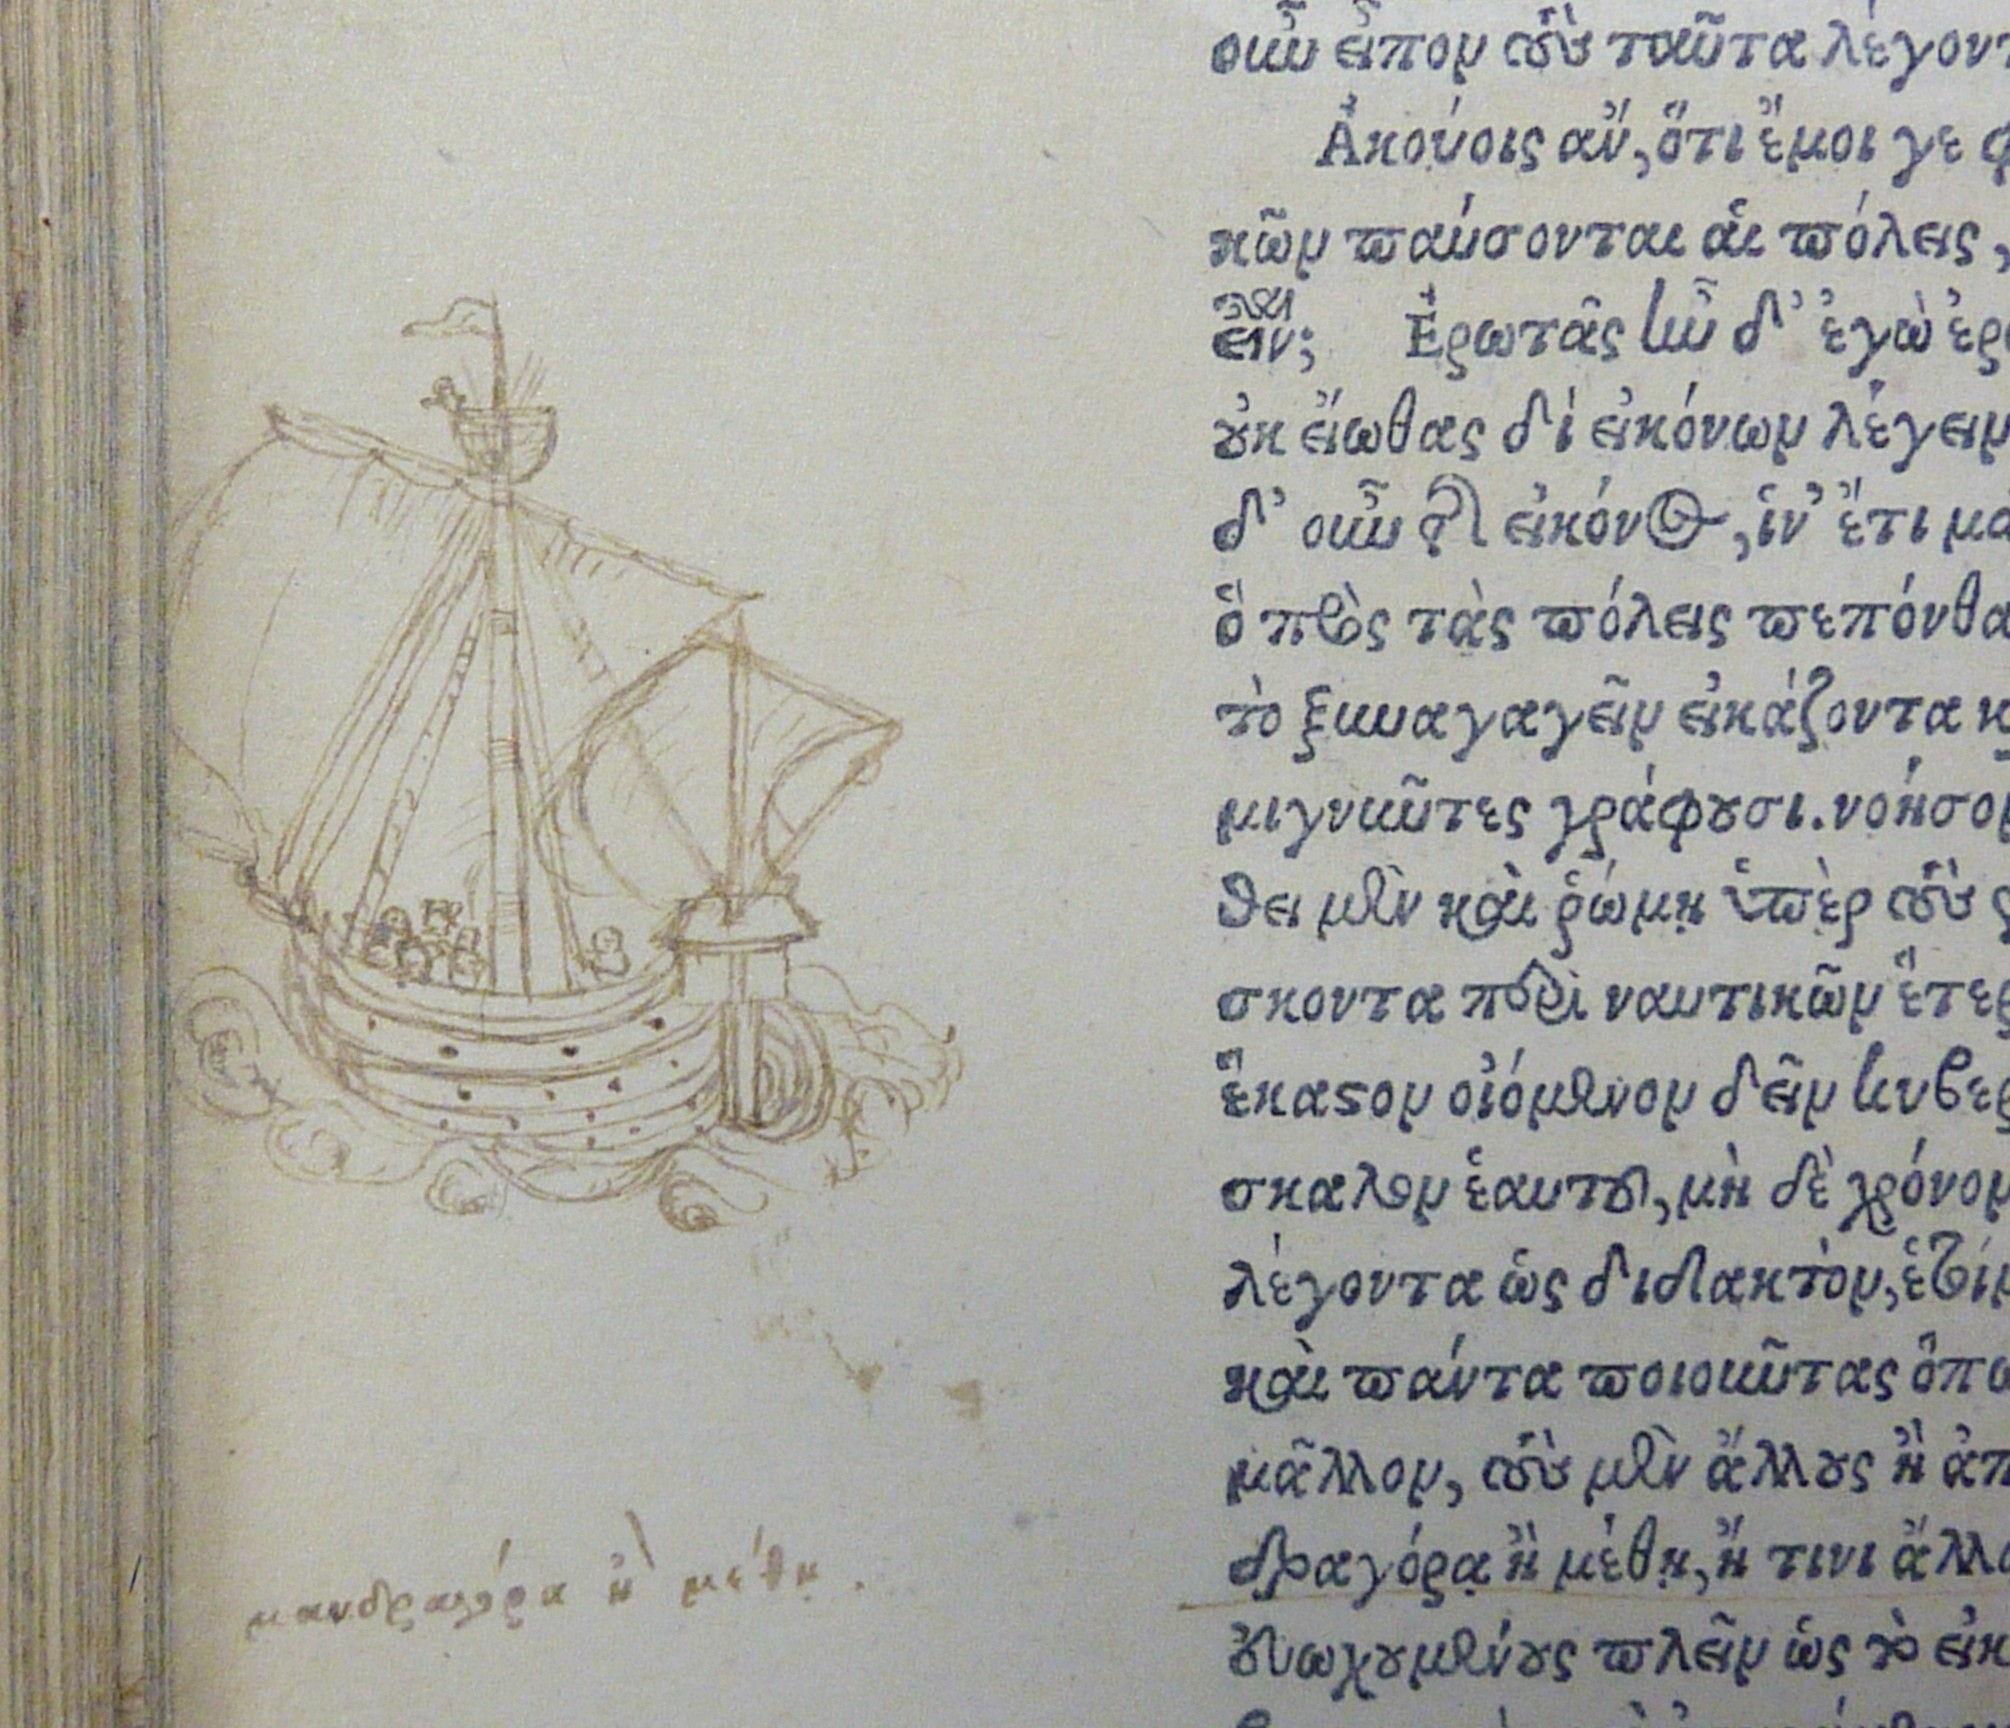 οὖν εἶπον τοῦ ταῦτα λέγοντ
Ἀκούοις ἂν, ὅτι ἔμοι γε φ
κῶν παύσονται αἱ πόλεις,
ειν; Ἐρωτᾷς ἦν δ' ἐγὼ ἐρ
οὐκ εἴωθας δι' εἰκόνων λέγειν
δ' οὖν τῆς εἰκόνος, ἵν' ἔτι μα
ὃ πρὸς τὰς πόλεις πεπόνθα
τὸ ξυναγαγεῖν εἰκάζοντα κ
μιγνῦντες γράφουσι. νοήσον
θει μὲν καὶ ῥώμῃ ὑπὲρ τοὺς
σκοντα περὶ ναυτικῶν ἕτερ
ἕκαστον οἰόμενον δεῖν κυβερ
σκαλον ἑαυτοῦ, μὴ δὲ χρόνον
λέγοντα ὡς διδακτὸν, ἑτοίμ
καὶ πάντα ποιοῦντας ὅπω
μᾶλλον, τοὺς μὲν ἄλλους ἢ ἀπ
δραγόρᾳ ἢ μέθῃ, ἤ τινι ἄλλ
εὐωχουμένους πλεῖν ὡς τὸ εἰκ
μανδραγόρα ἢ μέθῃ.